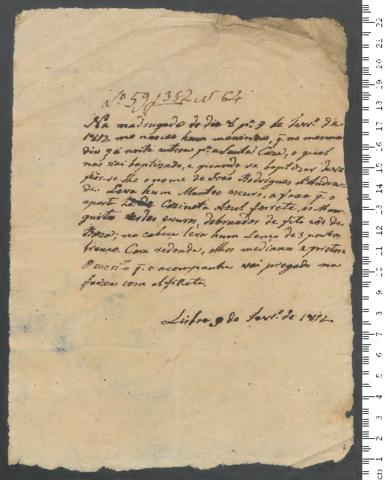 Lº 59 f 352 nº 64
Na madrugada do dia 8 pª 9 de Fevrº de
1812 me nasceo hum menino, q. no mesmo
dia 9 á noite entrou pª a Santa Caza, o qual
não vai baptizado, e quando se baptizar dezejo
se lhe o nome de João Rodrigues d'Andra-
de. Leva hum Manteo escuro, a faxa q. o
aperta de Cazineta Azul ferrete, os Man-
guitos escuros, debruados de fita côr de
Roza; na cabeça leva hum Lenço de 3 pontas
branco. Cara redonda, olhos medianos e pretos.
O q. o acompanha vai pregado na
faixa com alfinete.
Lisboa 9 de Fevrº de 1812